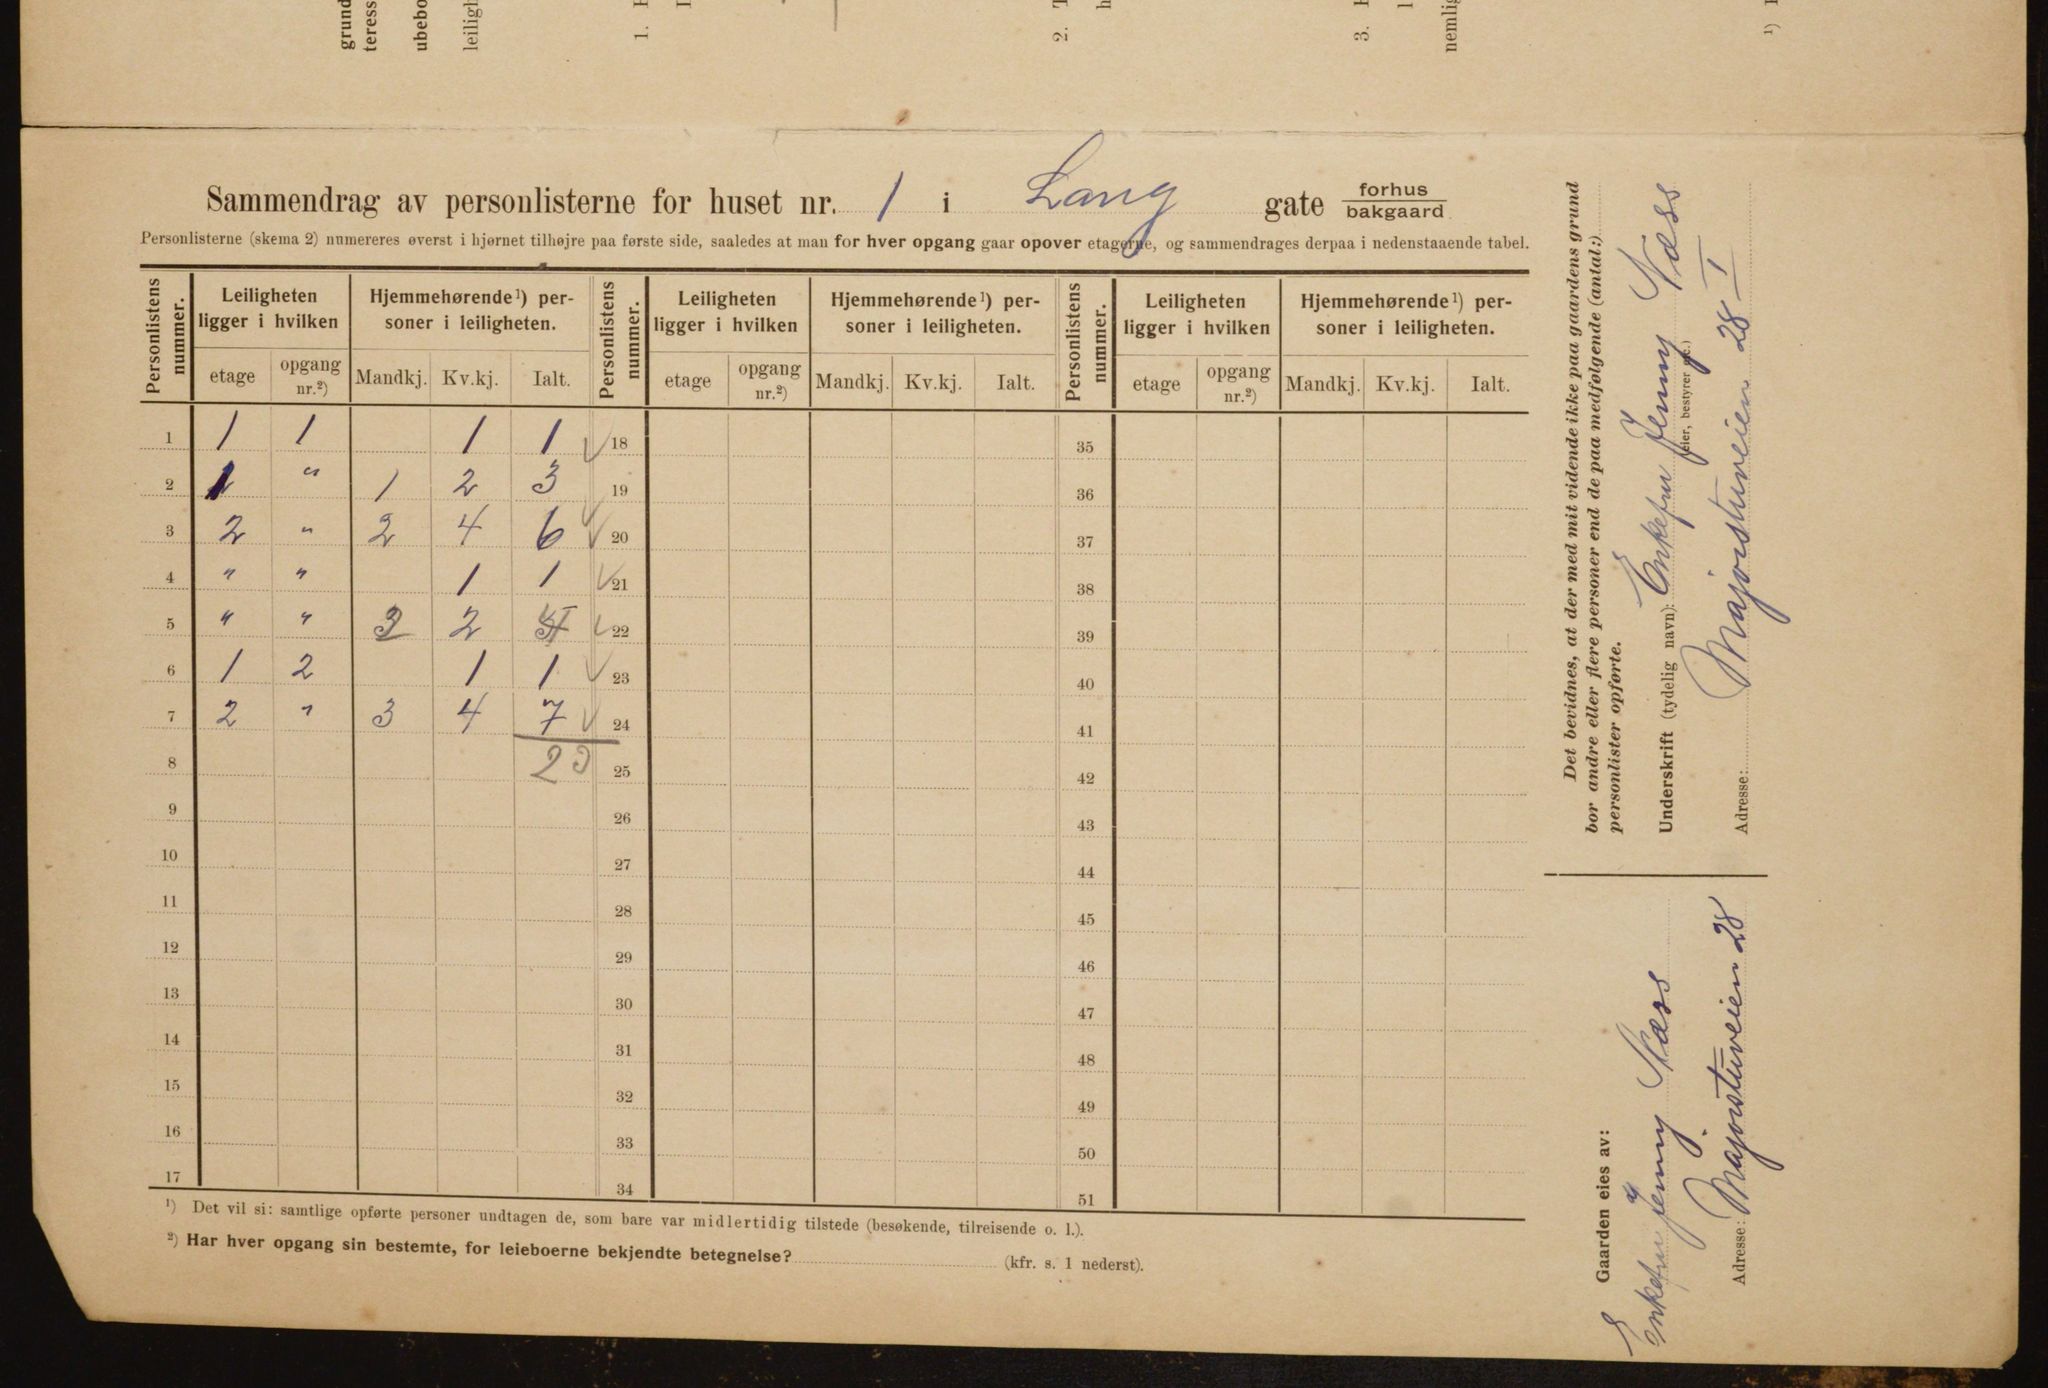 grund
teress
ubebo
leiligh
1.
2.
3.
nemlig
¹)
Sammendrag av personlisterne for huset nr. 1 i Lang gate forhus
bakgaard
Personlisterne (skema 2) numereres øverst i hjørnet tilhøjre paa første side, saaledes at man for hver opgang gaar opover etagerne, og sammendrages derpaa i nedenstaaende tabel.
Personlistens nummer. Leiligheten ligger i hvilken Hjemmehørende¹) personer i leiligheten. Personlistens nummer. Leiligheten ligger i hvilken Hjemmehørende¹) personer i leiligheten. Personlistens nummer. Leiligheten ligger i hvilken Hjemmehørende¹) personer i leiligheten.
etage opgang nr.²) Mandkj. Kv.kj. Ialt. etage opgang nr.²) Mandkj. Kv.kj. Ialt. etage opgang nr.²) Mandkj. Kv.kj. Ialt.
1 1 1 1 1 18 35
2 1 " 1 2 3 19 36
3 2 " 2 4 6 20 37
4 " " 1 1 21 38
5 " " 2 22 39
6 1 2 1 1 23 40
7 2 " 3 4 7 24 41
8 23 25 42
9 26 43
10 27 44
11 28 45
12 29 46
13 30 47
14 31 48
15 32 49
16 33 50
17 34 51
¹) Det vil si: samtlige opførte personer undtagen de, som bare var midlertidig tilstede (besøkende, tilreisende o. l.).
²) Har hver opgang sin bestemte, for leieboerne bekjendte betegnelse? (kfr. s. 1 nederst).
Det bevidnes, at der med mit vidende ikke paa gaardens grund
bor andre eller flere personer end de paa medfølgende (antal:)
personlister opførte.
Underskrift (tydelig navn): Enkefru Jenny Næss
(eier, bestyrer etc.)
Adresse: Majorstuveien 28 I
Gaarden eies av:
Enkefru Jenny Næss
Adresse: Majorstuveien 28